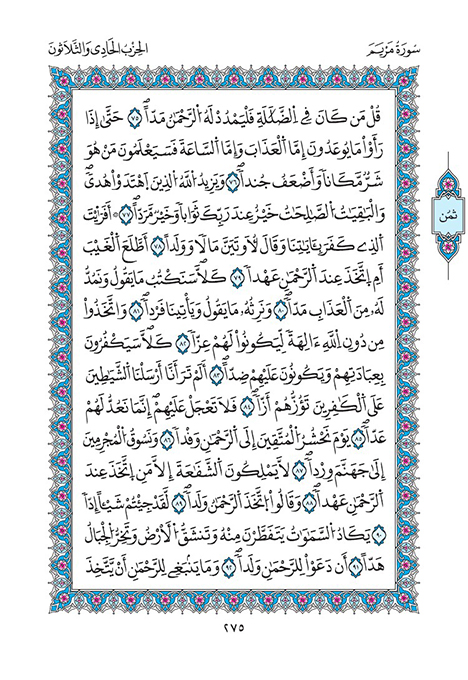 سُورَةُ مَرْيَمَ
الحِزْبُ الحَادِي وَالثَّلَاثُونَ
قُلْ مَن كَانَ فِے اِ۬لضَّلَٰلَةِ فَلْيَمْدُدْ لَهُ اُ۬لرَّحْمَٰنُ مَدّاًۖ ٧٥ حَتَّيٰٓ إِذَا
رَأَوْاْ مَا يُوعَدُونَ إِمَّا اَ۬لْعَذَابَ وَإِمَّا اَ۬لسَّاعَةَ فَسَيَعْلَمُونَ مَنْ هُوَ
شَرّٞ مَّكَاناٗ وَأَضْعَفُ جُنداٗۖ ٧٦ وَيَزِيدُ اُ۬للَّهُ اُ۬لذِينَ اَ۪هْتَدَوْاْ هُديٗۖ
وَالْبَٰقِيَٰتُ اُ۬لصَّٰلِحَٰتُ خَيْرٌ عِندَ رَبِّكَ ثَوَاباٗ وَخَيْرٞ مَّرَدّاًۖ ٧٧ ۞ اَفَرَٰٓيْتَ
اَ۬لذِے كَفَرَ بِـَٔايَٰتِنَا وَقَالَ لَأُوتَيَنَّ مَالاٗ وَوَلَداًۖ ٧٨ اَطَّلَعَ اَ۬لْغَيْبَ
أَمِ اِ۪تَّخَذَ عِندَ اَ۬لرَّحْمَٰنِ عَهْداٗۖ ٧٩ كَلَّاۖ سَنَكْتُبُ مَا يَقُولُ وَنَمُدُّ
لَهُۥ مِنَ اَ۬لْعَذَابِ مَدّاٗۖ ٨٠ وَنَرِثُهُۥ مَا يَقُولُ وَيَأْتِينَا فَرْداٗۖ ٨١ وَاتَّخَذُواْ
مِن دُونِ اِ۬للَّهِ ءَالِهَةٗ لِّيَكُونُواْ لَهُمْ عِزّاٗۖ ٨٢ كَلَّاۖ سَيَكْفُرُونَ
بِعِبَادَتِهِمْ وَيَكُونُونَ عَلَيْهِمْ ضِدّاًۖ ٨٣ اَلَمْ تَرَ أَنَّآ أَرْسَلْنَا اَ۬لشَّيَٰطِينَ
عَلَي اَ۬لْكٰ۪فِرِينَ تَؤُزُّهُمُۥٓ أَزّاٗۖ ٨٤ فَلَا تَعْجَلْ عَلَيْهِمُۥٓۖ إِنَّمَا نَعُدُّ لَهُمْ
عَدّاٗۖ ٨٥ يَوْمَ نَحْشُرُ اُ۬لْمُتَّقِينَ إِلَي اَ۬لرَّحْمَٰنِ وَفْداٗ ٨٦ وَنَسُوقُ اُ۬لْمُجْرِمِينَ
إِلَيٰ جَهَنَّمَ وِرْداٗۖ ٨٧ لَّا يَمْلِكُونَ اَ۬لشَّفَٰعَةَ إِلَّا مَنِ اِ۪تَّخَذَ عِندَ
اَ۬لرَّحْمَٰنِ عَهْداٗۖ ٨٨ وَقَالُواْ اُ۪تَّخَذَ اَ۬لرَّحْمَٰنُ وَلَداٗۖ ٨٩ لَّقَدْ جِئْتُمْ شَيْـٔاً اِدّاٗ
٩٠ يَكَادُ اُ۬لسَّمَٰوَٰتُ يَتَفَطَّرْنَ مِنْهُ وَتَنشَقُّ اُ۬لْأَرْضُ وَتَخِرُّ اُ۬لْجِبَالُ
هَدّاً ٩١ اَن دَعَوْاْ لِلرَّحْمَٰنِ وَلَداٗۖ ٩٢ وَمَا يَنۢبَغِے لِلرَّحْمَٰنِ أَنْ يَّتَّخِذَ
ثُمُن
٢٧٥